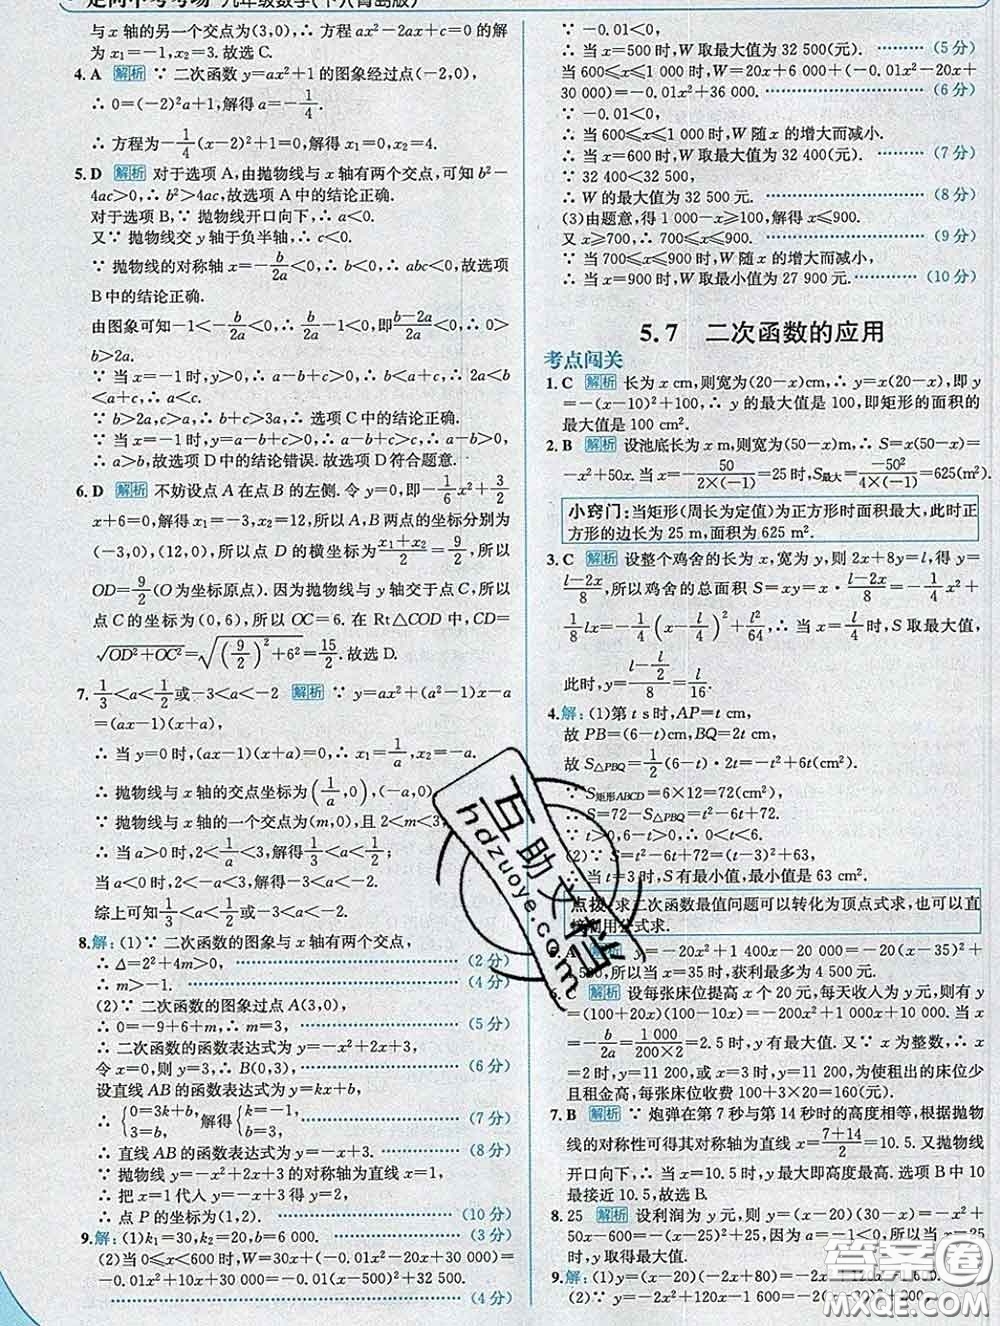 走向中考考场 九年级数学(下)(青岛版)
与 x 轴的另一个交点为(3,0),∴ 方程 ax²-2ax+c=0 的解
为 x₁=-1,x₂=3.故选 C.
4. A 解析 ∵ 二次函数 y=ax²+1 的图象经过点(-2,0),
∴ 0=(-2)²a+1,解得 a=-1/4.
∴ 方程为-1/4(x-2)²+1=0,解得 x₁=0,x₂=4.
5. D 解析 对于选项 A,由抛物线与 x 轴有两个交点,可知 b²-
4ac>0,∴ b²>4ac,故选项 A 中的结论正确.
对于选项 B,∵ 抛物线开口向下,∴ a<0.
又∵ 抛物线交 y 轴于负半轴,∴ c<0.
∵ 抛物线的对称轴 x=-b/2a<0,∴ b<0,∴ abc<0,故选项
B 中的结论正确.
由图象可知-1<-b/2a<0,∴ b/2a-1<0,即(b-2a)/2a<0,∴ 0>
b>2a.
∵ 当 x=-1 时,y>0,∴ a-b+c>0,∴ b<a+c,∴ 2a<b
<a+c,∴ a<c.
∵ b>2a,c>a,∴ b+c>3a,∴ 选项 C 中的结论正确.
∵ 当 x=-1 时,y=a-b+c>0,∴ a-b>-c>0,
∴ a>b,故选项 D 中的结论错误.故选项 D 符合题意.
6. D 解析 不妨设点 A 在点 B 的左侧.令 y=0,即-1/6x²+3/2
x+6=0,解得 x₁=-3,x₂=12,所以 A,B 两点的坐标分别为
(-3,0),(12,0),所以点 D 的横坐标为(x₁+x₂)/2=9/2,所以
OD=9/2(O为坐标原点).因为抛物线与 y 轴交于点 C,所以
点 C 的坐标为(0,6),所以 OC=6.在 Rt△COD 中,CD=
√(OD²+OC²)=√((9/2)²+6²)=15/2.故选 D.
7. 1/3<a<1/2或-3<a<-2 解析 ∵ y=ax²+(a²-1)x-a
=(ax-1)(x+a),
∴ 当 y=0 时,(ax-1)(x+a)=0,∴ x₁=1/a,x₂=-a.
∴ 抛物线与 x 轴的交点坐标为(1/a,0),(-a,0).
∵ 抛物线与 x 轴的一个交点为(m,0),且 2<m<3,
∴ 当 a>0 时,2<1/a<3,解得1/3<a<1/2;
当 a<0 时,2<-a<3,解得-3<a<-2.
综上可知1/3<a<1/2或-3<a<-2.
8.解:(1)∵ 二次函数的图象与 x 轴有两个交点,
∴ Δ=2²+4m>0, (2 分)
∴ m>-1. (4 分)
(2)∵ 二次函数的图象过点 A(3,0),
∴ 0=-9+6+m,∴ m=3, (5 分)
∴ 二次函数的函数表达式为 y=-x²+2x+3,
令 x=0,则 y=3,∴ B(0,3), (6 分)
设直线 AB 的函数表达式为 y=kx+b,
∴ {0=3k+b, 3=b, 解得{k=-1, b=3, (7 分)
∴ 直线 AB 的函数表达式为 y=-x+3. (8 分)
∵ 抛物线 y=-x²+2x+3 的对称轴为直线 x=1,
∴ 把 x=1 代入 y=-x+3 得 y=2,
∴ 点 P 的坐标为(1,2). (10 分)
9.解:(1)k₁=30,k₂=20,b=6 000. (3 分)
(2)当 0≤x≤600 时,W=30x+(-0.01x²-20x+30 000)=
-0.01x²+10x+30 000=-0.01(x-500)²+32 500.
(4 分)
∵ -0.01<0,
∴ 当 x=500 时,W 取最大值为 32 500(元). (5 分)
当 600≤x≤1 000 时,W=20x+6 000+(-0.01x²-20x+
30 000)=-0.01x²+36 000. (6 分)
∵ -0.01<0,
∴ 当 600≤x≤1 000 时,W 随 x 的增大而减小.
∴ 当 x=600 时,W 取最大值为 32 400(元). (7 分)
∵ 32 400<32 500,
∴ W 的最大值为 32 500 元. (8 分)
(3)由题意,得 1 000-x≥100,解得 x≤900.
又 x≥700,∴ 700≤x≤900. (9 分)
∵ 当 700≤x≤900 时,W 随 x 的增大而减小,
∴ 当 x=900 时,W 取最小值为 27 900 元. (10 分)
5.7 二次函数的应用
考点闯关
1. C 解析 长为 x cm,则宽为(20-x)cm,∴ y=x(20-x),即 y
=-(x-10)²+100,∴ y 的最大值是 100,即矩形的面积的
最大值是 100 cm².
2. B 解析 设池底长为 x m,则宽为(50-x)m,∴ S=x(50-x)=
-x²+50x.当 x=-50/(2×(-1))=25 时,S最大=-50²/(4×(-1))=625(m²).
小窍门:当矩形(周长为定值)为正方形时面积最大,此时正
方形的边长为 25 m,面积为 625 m².
3. C 解析 设整个鸡舍的长为 x,宽为 y,则 2x+8y=l,得 y=
(l-2x)/8,所以鸡舍的总面积 S=xy=x·(l-2x)/8=-1/4x²+
1/8lx=-1/4(x-l/4)²+l²/64,∴ 当 x=l/4时,S 取最大值,
此时,y=(l-l/2)/8=l/16.
4.解:(1)第 t s 时,AP=t cm,
故 PB=(6-t)cm,BQ=2t cm,
故 S△PBQ=1/2(6-t)·2t=-t²+6t(cm²).
∵ S矩形ABCD=6×12=72(cm²),
∴ S=72-S△PBQ=t²-6t+72(cm²).
∵ t>0,6-t>0,∴ 0<t<6.
(2)∵ S=t²-6t+72=(t-3)²+63,
∴ 当 t=3 时,S 有最小值,最小值是 63 cm².
点拨:求二次函数最值问题可以转化为顶点式求,也可以直
接利用公式求.
5. A 解析 y=-20x²+1 400x-20 000=-20(x-35)²+
4 500,所以当 x=35 时,获利最多为 4 500 元.
6. C 解析 设每张床位提高 x 个 20 元,每天收入为 y 元,则有 y
=(100+20x)(100-10x)=-200x²+1 000x+10 000.当 x=
-b/2a=1 000/(200×2)=2.5 时,y 有最大值.又∵ x 为整数,∴ x=
2 时,y=11 200,或 x=3 时,y=11 200,为使租出的床位少
且租金高,每张床位收费 100+3×20=160(元).
7. B 解析 ∵ 炮弹在第 7 秒与第 14 秒时的高度相等,根据抛物
线的对称性可得其对称轴为直线 x=(7+14)/2=10.5.又抛物线
开口向下,∴ 当 x=10.5 时,y最大即高度最高.选项 B 中 10
最接近 10.5,故选 B.
8. 25 解析 设利润为 y 元,则 y=(x-20)(30-x)=-x²+
50x-600=-(x-25)²+25,∵ -1<0,∴ 当 x=25
时,y 取得最大值.
9.解:(1)y=(x-20)(-2x+80)=-2x²+120x-1600.
(2)y=-2x²+120x-1 600=-2(x-30)²+200,
互助文档
hdzuoye.com
答案圈
MXQE.COM